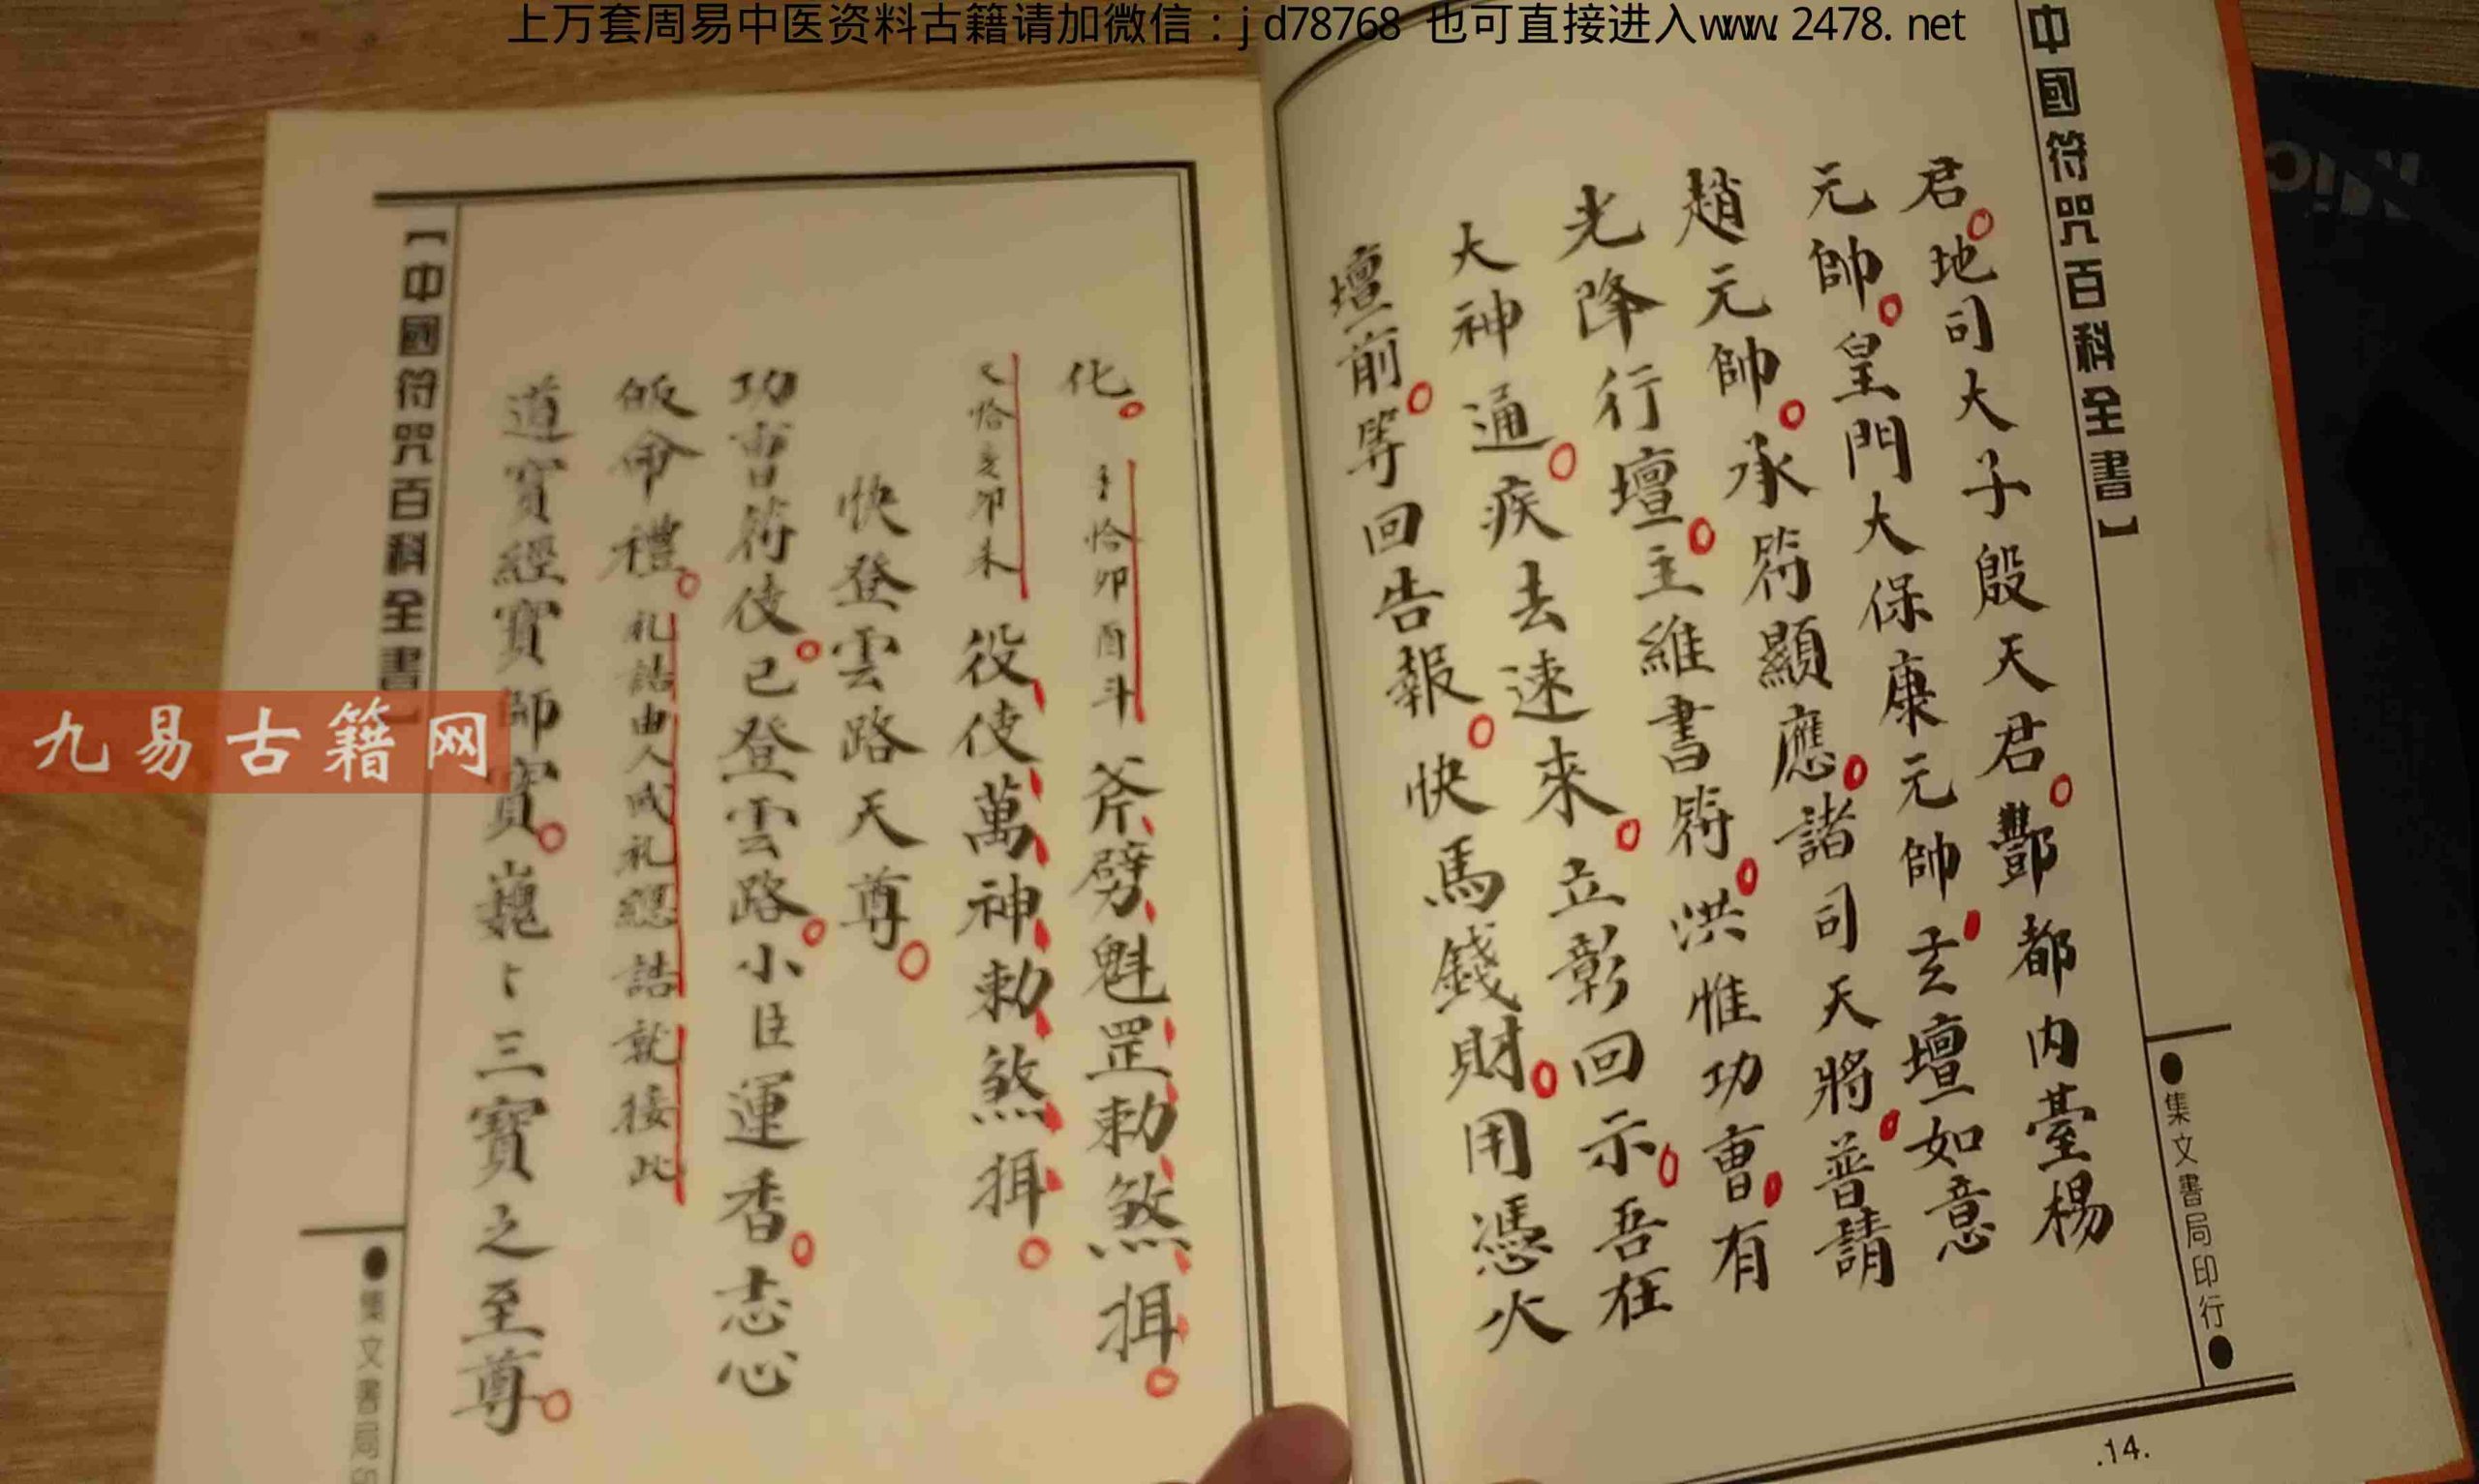 上万套周易中医资料古籍请加微信：jd78768 也可直接进入www.2478.net
中國符咒百科全書】
●集文書局印行●
君。地司大子殷天君。酆都内臺楊
元帥。皇門大保康元帥。玄壇如意
趙元帥。承符顯應。諸司天將。普請
光降行壇。主維書符。洪惟功曹。有
大神通。疾去速來。立彰回示。吾在
壇前。等回告報。快馬錢財。用憑火
.14.
化。手恰卯酉斗 斧劈魁罡勅煞挕。
又恰亥卯未 役使萬神勅煞挕。
快登雲路天尊。
功曹符使。已登雲路。小臣運香。志心
皈命禮。礼誥由人或礼總誥就接此
道寶經寶師寶。巍〻三寶之至尊。
【中國符咒百科全書】
●集文書局印
九易古籍网